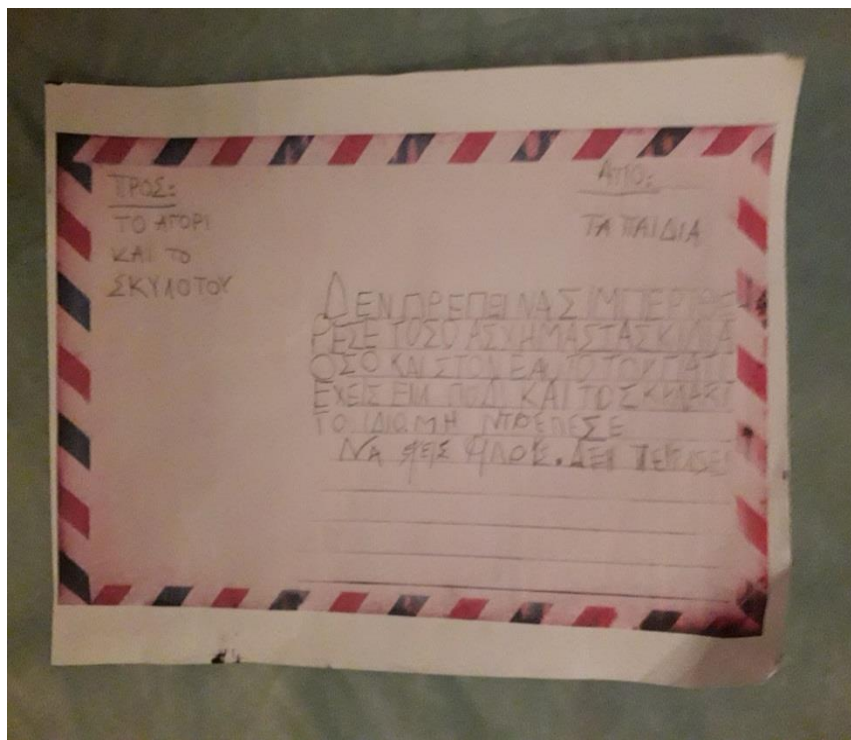 ΠΡΟΣ:
ΤΟ ΑΓΟΡΙ
ΚΑΙ ΤΟ
ΣΚΥΛΟ ΤΟΥ
ΑΠΟ:
ΤΑ ΠΑΙΔΙΑ
ΔΕΝ ΠΡΕΠΕΙ ΝΑ ΣΙΜΠΕΡΙΦΕ
ΡΕΣΕ ΤΟΣΟ ΑΣΧΗΜΑ ΣΤΑ ΣΚΙΛΙΑ
ΟΣΟ ΚΑΙ ΣΤΟΝ ΕΑΥΤΟ ΤΟΥ ΓΙΑΤΙ
ΕΧΕΙΣ ΕΝΑ ΠΟΔΙ ΚΑΙ ΤΟ ΣΚΥΛΑΚΙ
ΤΟ ΙΔΙΟ ΜΗ ΝΤΡΕΠΕΣΕ
ΝΑ ΠΕΙΣ